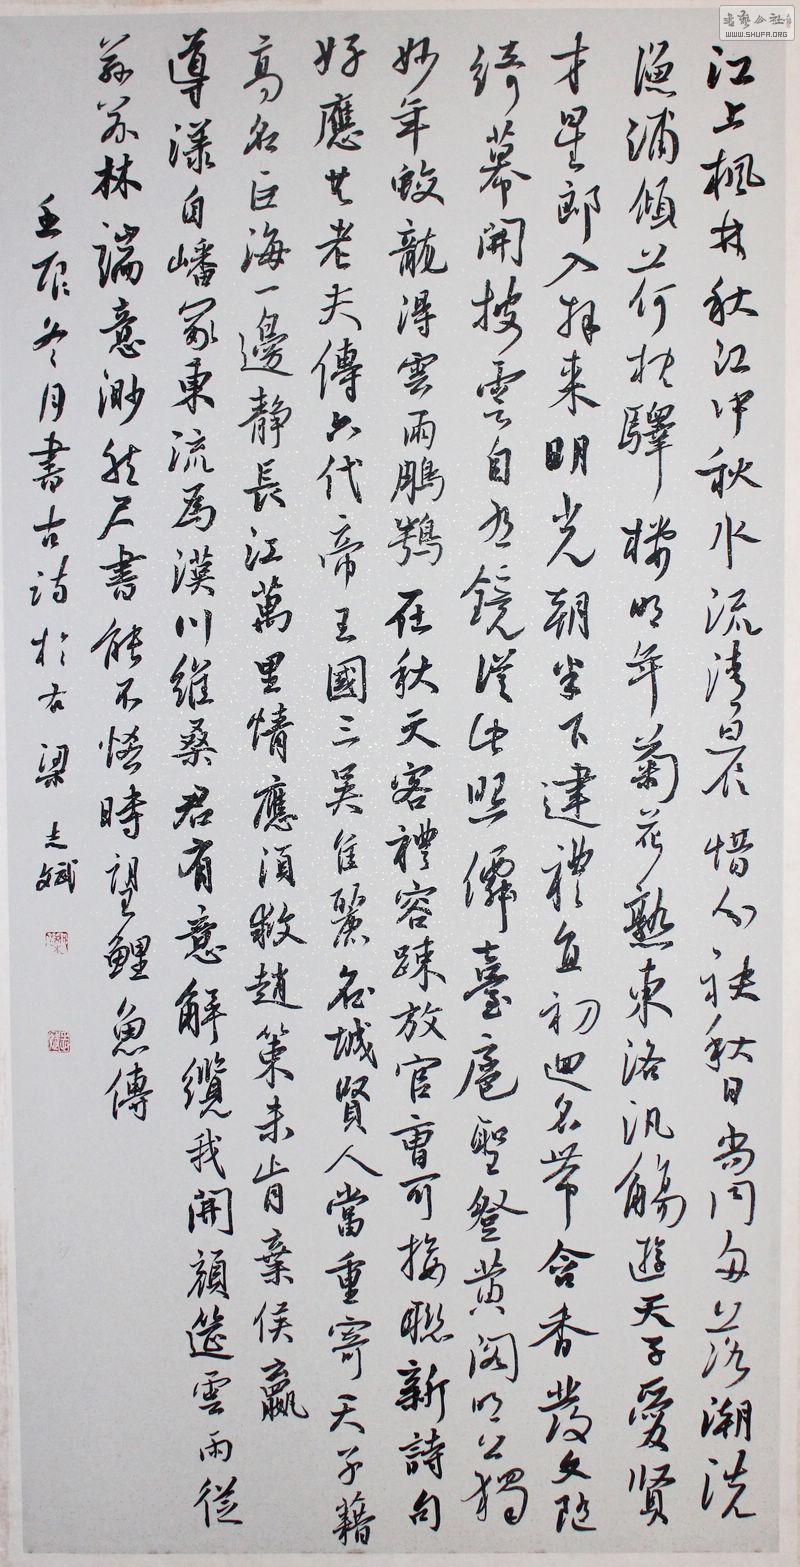 江上楓林秋江中秋水流清晨惜分袂秋日尚同舟落潮洗
漁浦傾荷枕驛樓明年菊花熟東洛汎觴遊天子愛賢
才星郎入拜来明光朝半下建禮直初迴名帶含香發文隨
綺幕開披雲自有鏡從此照僊臺扈聖登黄閣明公獨
妙年蛟龍得雲雨鵰鶚在秋天客禮容疎放官曹可接聯新詩句
好應共老夫傳六代帝王國三吴佳麗名城賢人當重寄天子藉
高名巨海一邊静長江萬里情應須救趙策未肯棄侯嬴
導漾自嶓冢東流為漢川維桑君有意解纜我開顔筵雲雨從
林端意渺然尺書能不悋時望鯉魚傳
壬辰冬月書古詩於右梁志斌
WWW.SHUFA.ORG